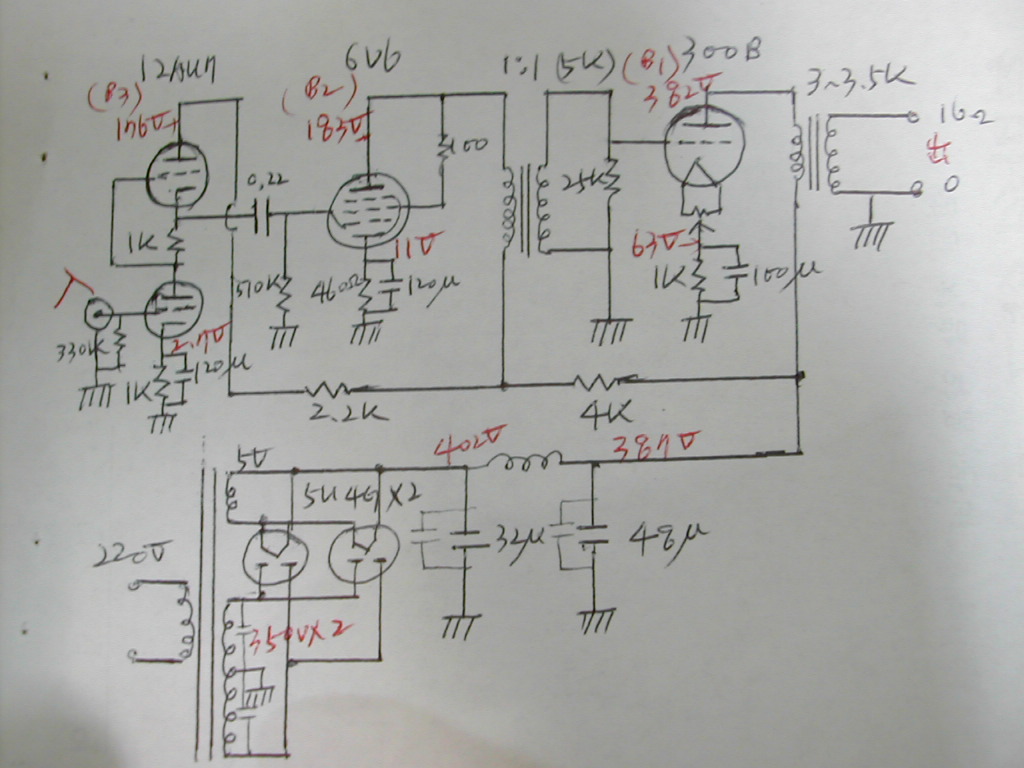 12AU7
6V6
1:1 (5K)
(B1)
300B
(B3)
(B2)
382V
3~3.5K
176V
183V
16Ω
出
100
0,22
25K
0
1K
11V
63V
入
510K
460Ω
120μ
1K
100μ
2.7V
330K
1K
120μ
2.2K
4K
5V
402V
387V
5U4G×2
220V
32μ
48μ
350V×2